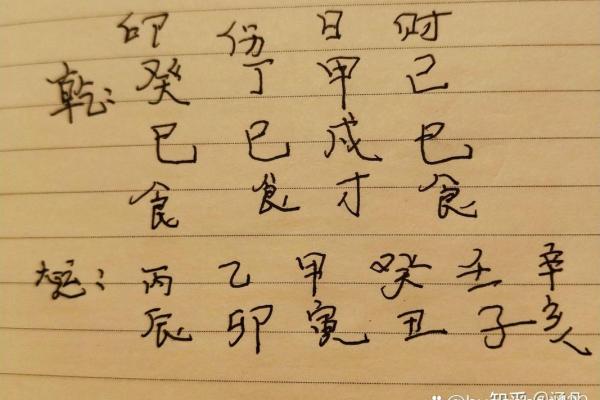 卬 伤 日 财
乾: 癸 丁 甲 己
巳 巳 戌 巳
食 食 才 食
大运: 丙 乙 甲 癸 壬 辛
辰 卯 寅 丑 子 亥
知乎